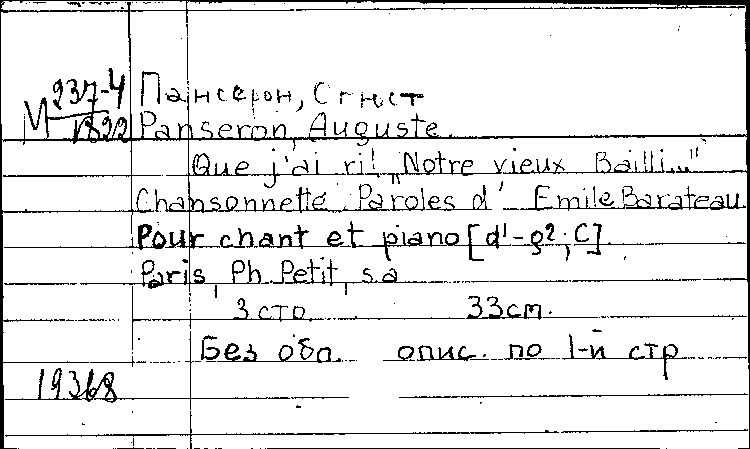 М 237-4/1822
Пансерон, Огюст
Panseron, Auguste.
Que j'ai ri! „Notre vieux Bailli..."
Chansonnette. Paroles d' Emile Barateau
Pour chant et piano [d¹-g²; C]
Paris, Ph. Petit, s.a
3 стр. 33см.
Без обл. опис. по 1-й стр
19368